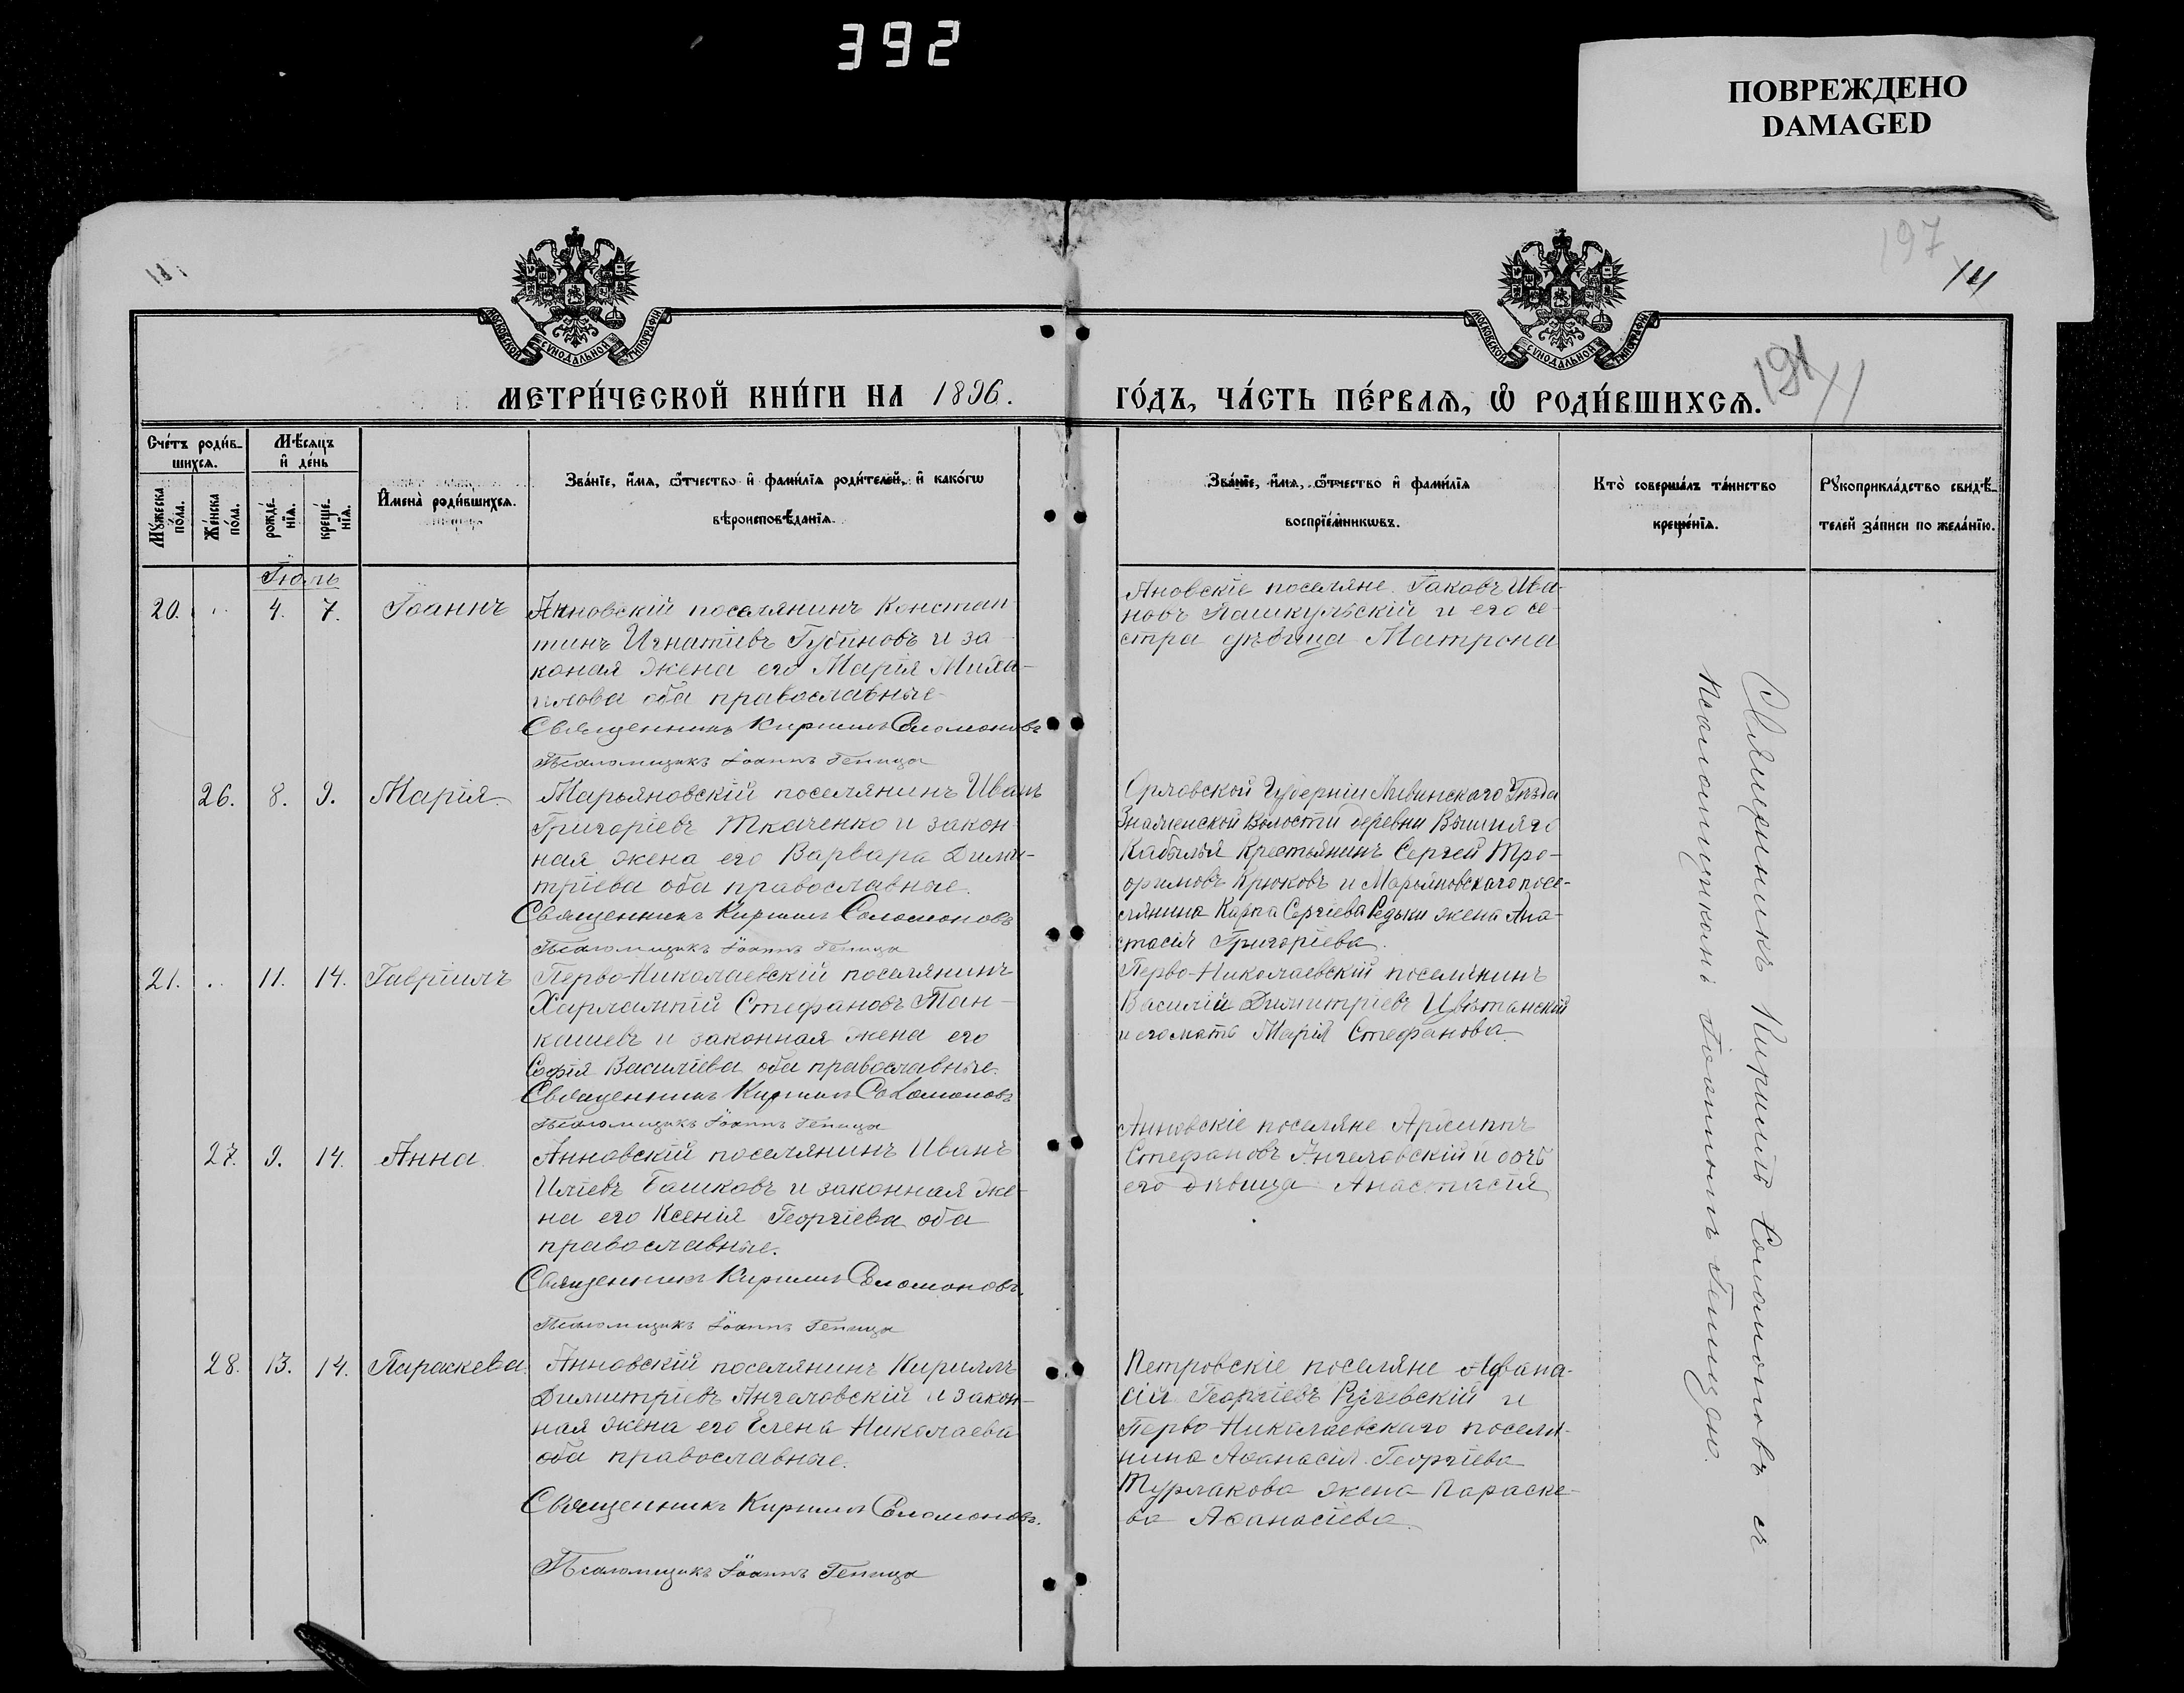 392
ПОВРЕЖДЕНО
DAMAGED
197
141
191
МОСКОВСКОЙ СѴНОДАЛЬНОЙ ТИПОГРАФІИ
МОСКОВСКОЙ СѴНОДАЛЬНОЙ ТИПОГРАФІИ
МЕТРИ́ЧЕСКОЙ КНИ́ГИ НА 1896.
ГО́ДЪ, ЧА́СТЬ ПЕ́РВАЯ, Ѡ РОДИ́ВШИХСЯ.
Сче́тъ роди́в-
шихся.
Мꙋ́жеска по́ла.
Же́нска по́ла.
Мѣ́сяцъ
и҆ де́нь
рожде́-
нїя.
креще́-
нїя.
И҆мена̀ роди́вшихся.
Зва́нїе, и҆́мя, ѻ҆́тчество и҆ фами́лїя роди́телей, и҆ како́гѡ
вѣроисповѣ́данїя.
Зва́нїе, и҆́мя, ѻ҆́тчество и҆ фами́лїя
воспрїе́мникѡвъ.
Кто̀ соверша́лъ та́инство
креще́нїя.
Рꙋкоприкла́дство свидѣ́-
телей за́писи по жела́нїю.
Іюль
20. 4. 7. Іоаннъ
Анновскій поселянинъ Констан-
тинъ Игнатіевъ Губиновъ и за-
коная жена его Марія Миха-
илова оба православные
Священникъ Кириллъ Соломоновъ
Псаломщикъ Іоаннъ Гепица
Ановскіе поселяне Іаковъ Ива-
новъ Пашкульскій и его се-
стра дѣвица Матрона
26. 8. 9. Марія
Марьяновскій поселянинъ Иванъ
Григоріевъ Ткаченко и закон-
ная жена его Варвара Дими-
тріева оба православные.
Священникъ Кириллъ Соломоновъ
Псаломщикъ Іоаннъ Гепица
Орловской Губерніи Ливинскаго Уѣзда
Знаменской Волости деревни Вышняго
Кабылья Крестьянинъ Сергей Тро-
фимовъ Крюковъ и Марьяновскаго посе-
лянина Карпа Сергіева Редьки жена Ана-
стасія Григоріева.
21. 11. 14. Гавріилъ
Перво-Николаевскій поселянинъ
Харлампій Стефановъ Тан-
кашевъ и законная жена его
Софія Василіева оба православные.
Священникъ Кириллъ Соломоновъ
Псаломщикъ Іоаннъ Гепица
Перво-Николаевскій поселянинъ
Василій Димитріевъ Цвѣтанскій
и его мать Марія Стефанова
27. 9. 14. Анна
Анновскій поселянинъ Иванъ
Иліевъ Башковъ и законная же-
на его Ксенія Георгіева оба
православные.
Священникъ Кириллъ Соломоновъ.
Псаломщикъ Іоаннъ Гепица
Анновскіе поселяне Архипъ
Стефановъ Ангеловскій и дочь
его дѣвица Анастасія
28. 13. 14. Параскева
Анновскій поселянинъ Кириллъ
Димитріевъ Ангеловскій и закон-
ная жена его Елена Николаева
оба православные.
Священникъ Кириллъ Соломоновъ.
Псаломщикъ Іоаннъ Гепица
Петровскіе поселяне Афана-
сій Георгіевъ Ручевскій и
Перво-Николаевскаго поселя-
нина Аѳанасія Георгіева
Турлакова жена Параске-
ва Аѳанасіева
Священникъ Кириллъ Соломоновъ съ
псаломщикомъ Іоанномъ Гепицою.